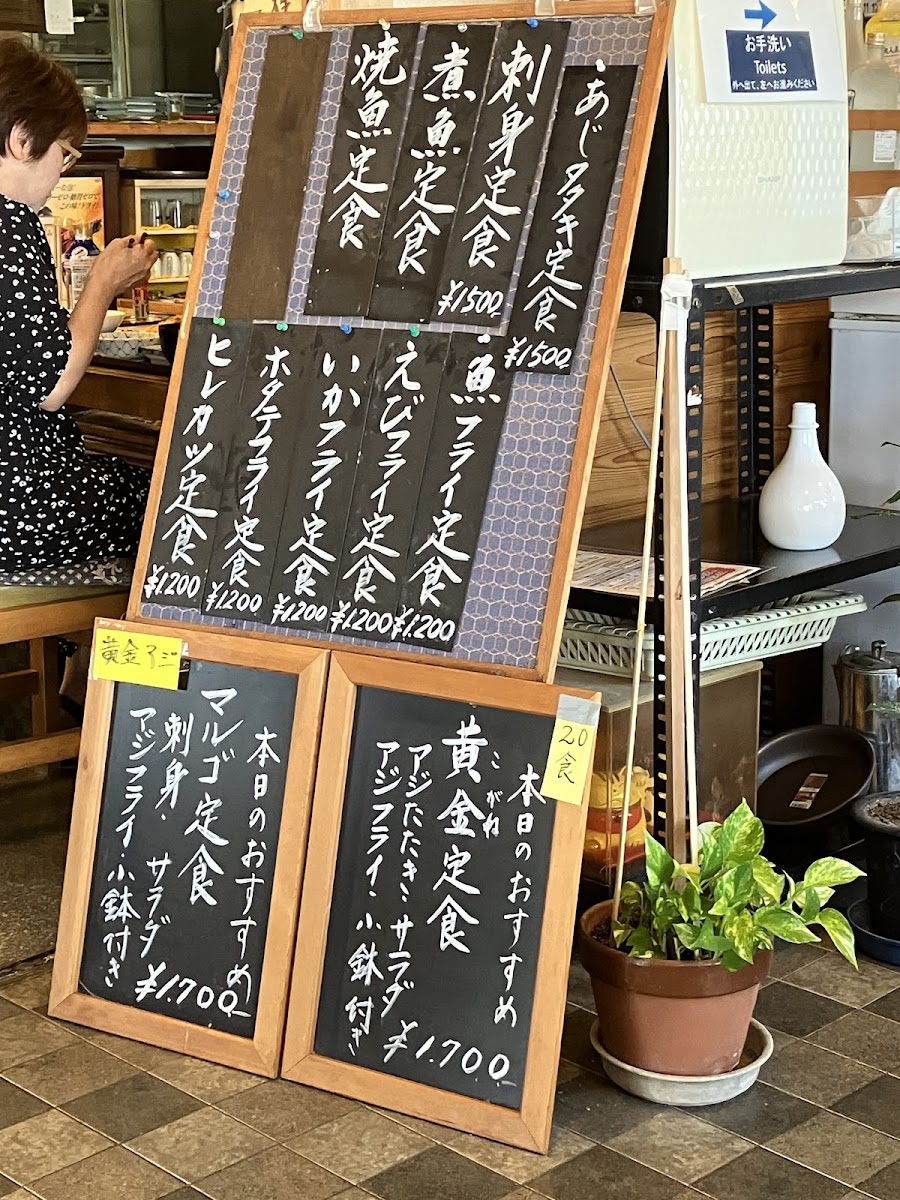 お手洗い
Toilets
外へ出て、左へお進みください
・あじタタキ定食
¥1500
刺身定食
¥1500
煮魚定食
焼魚定食
・魚フライ定食
¥1.200
えびフライ定食
¥1.200
いかフライ定食
¥1.200
ホタテフライ定食
¥1.200
ヒレカツ定食
¥1.200
20食
本日のおすすめ
こがね
黄金定食
アジたたき・サラダ
アジフライ・小鉢付き
¥1.700
黄金アジ
本日のおすすめ
マルゴ定食
刺身・サラダ
アジフライ・小鉢付き
¥1.700